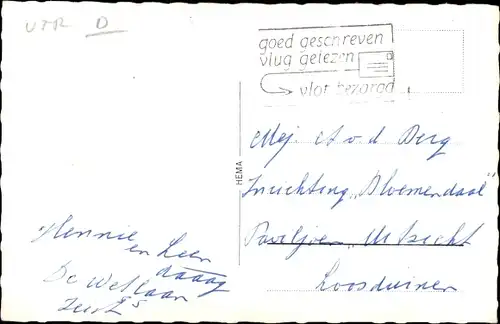 UTR D
goed geschreven
vlug gelezen
vlot bezorgd
HEMA
Mej A v d Berg
Inrichting "Bloemendaal"
Paviljoen "Utrecht
Loosduinen
Hennie
en Leen
De
Zeist